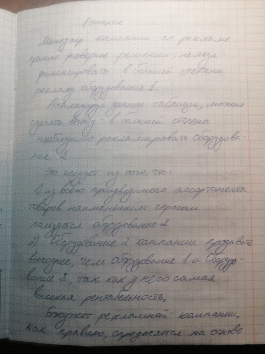 Решение
Менеджер компании по рекламе
принял неверное решение, нельзя
рекламировать в большей степени
рекламу оборудования 1.
Анализируя данные таблицы, можно
сделать вывод: в полной степени
необходимо рекламировать оборудова-
ние 2.
Это следует из того, что:
1) из всего производимого ассортимента
товаров наименьшим спросом
пользуется оборудование 2
2) Оборудование 2 компании продавать
выгоднее, чем оборудование 1 и оборудо-
вание 3, так как у него самая
высокая рентабельность,
Бюджет рекламной компании,
как правило, определяется на основе